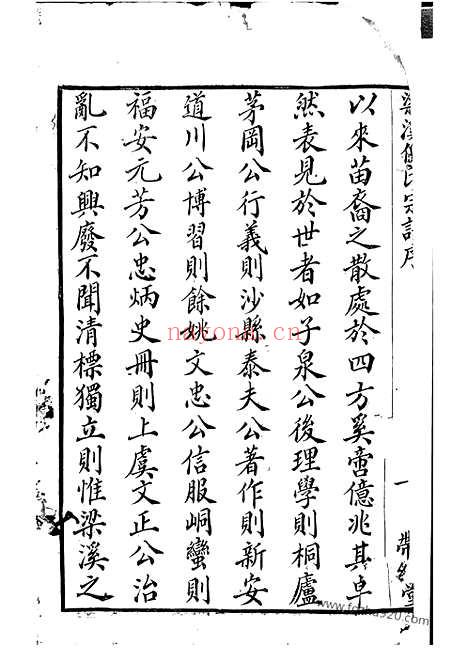 以來苗裔之散處於四方奚啻億兆其卓
然表見於世者如子泉公後理學則桐廬
茅岡公行義則沙縣泰夫公著作則新安
道川公博習則餘姚文忠公信服峒蠻則
福安元芳公忠炳史冊則上虞文正公治
亂不知興廢不聞清標獨立則惟梁溪之
一
nayona.cn
www.foxhao920.com